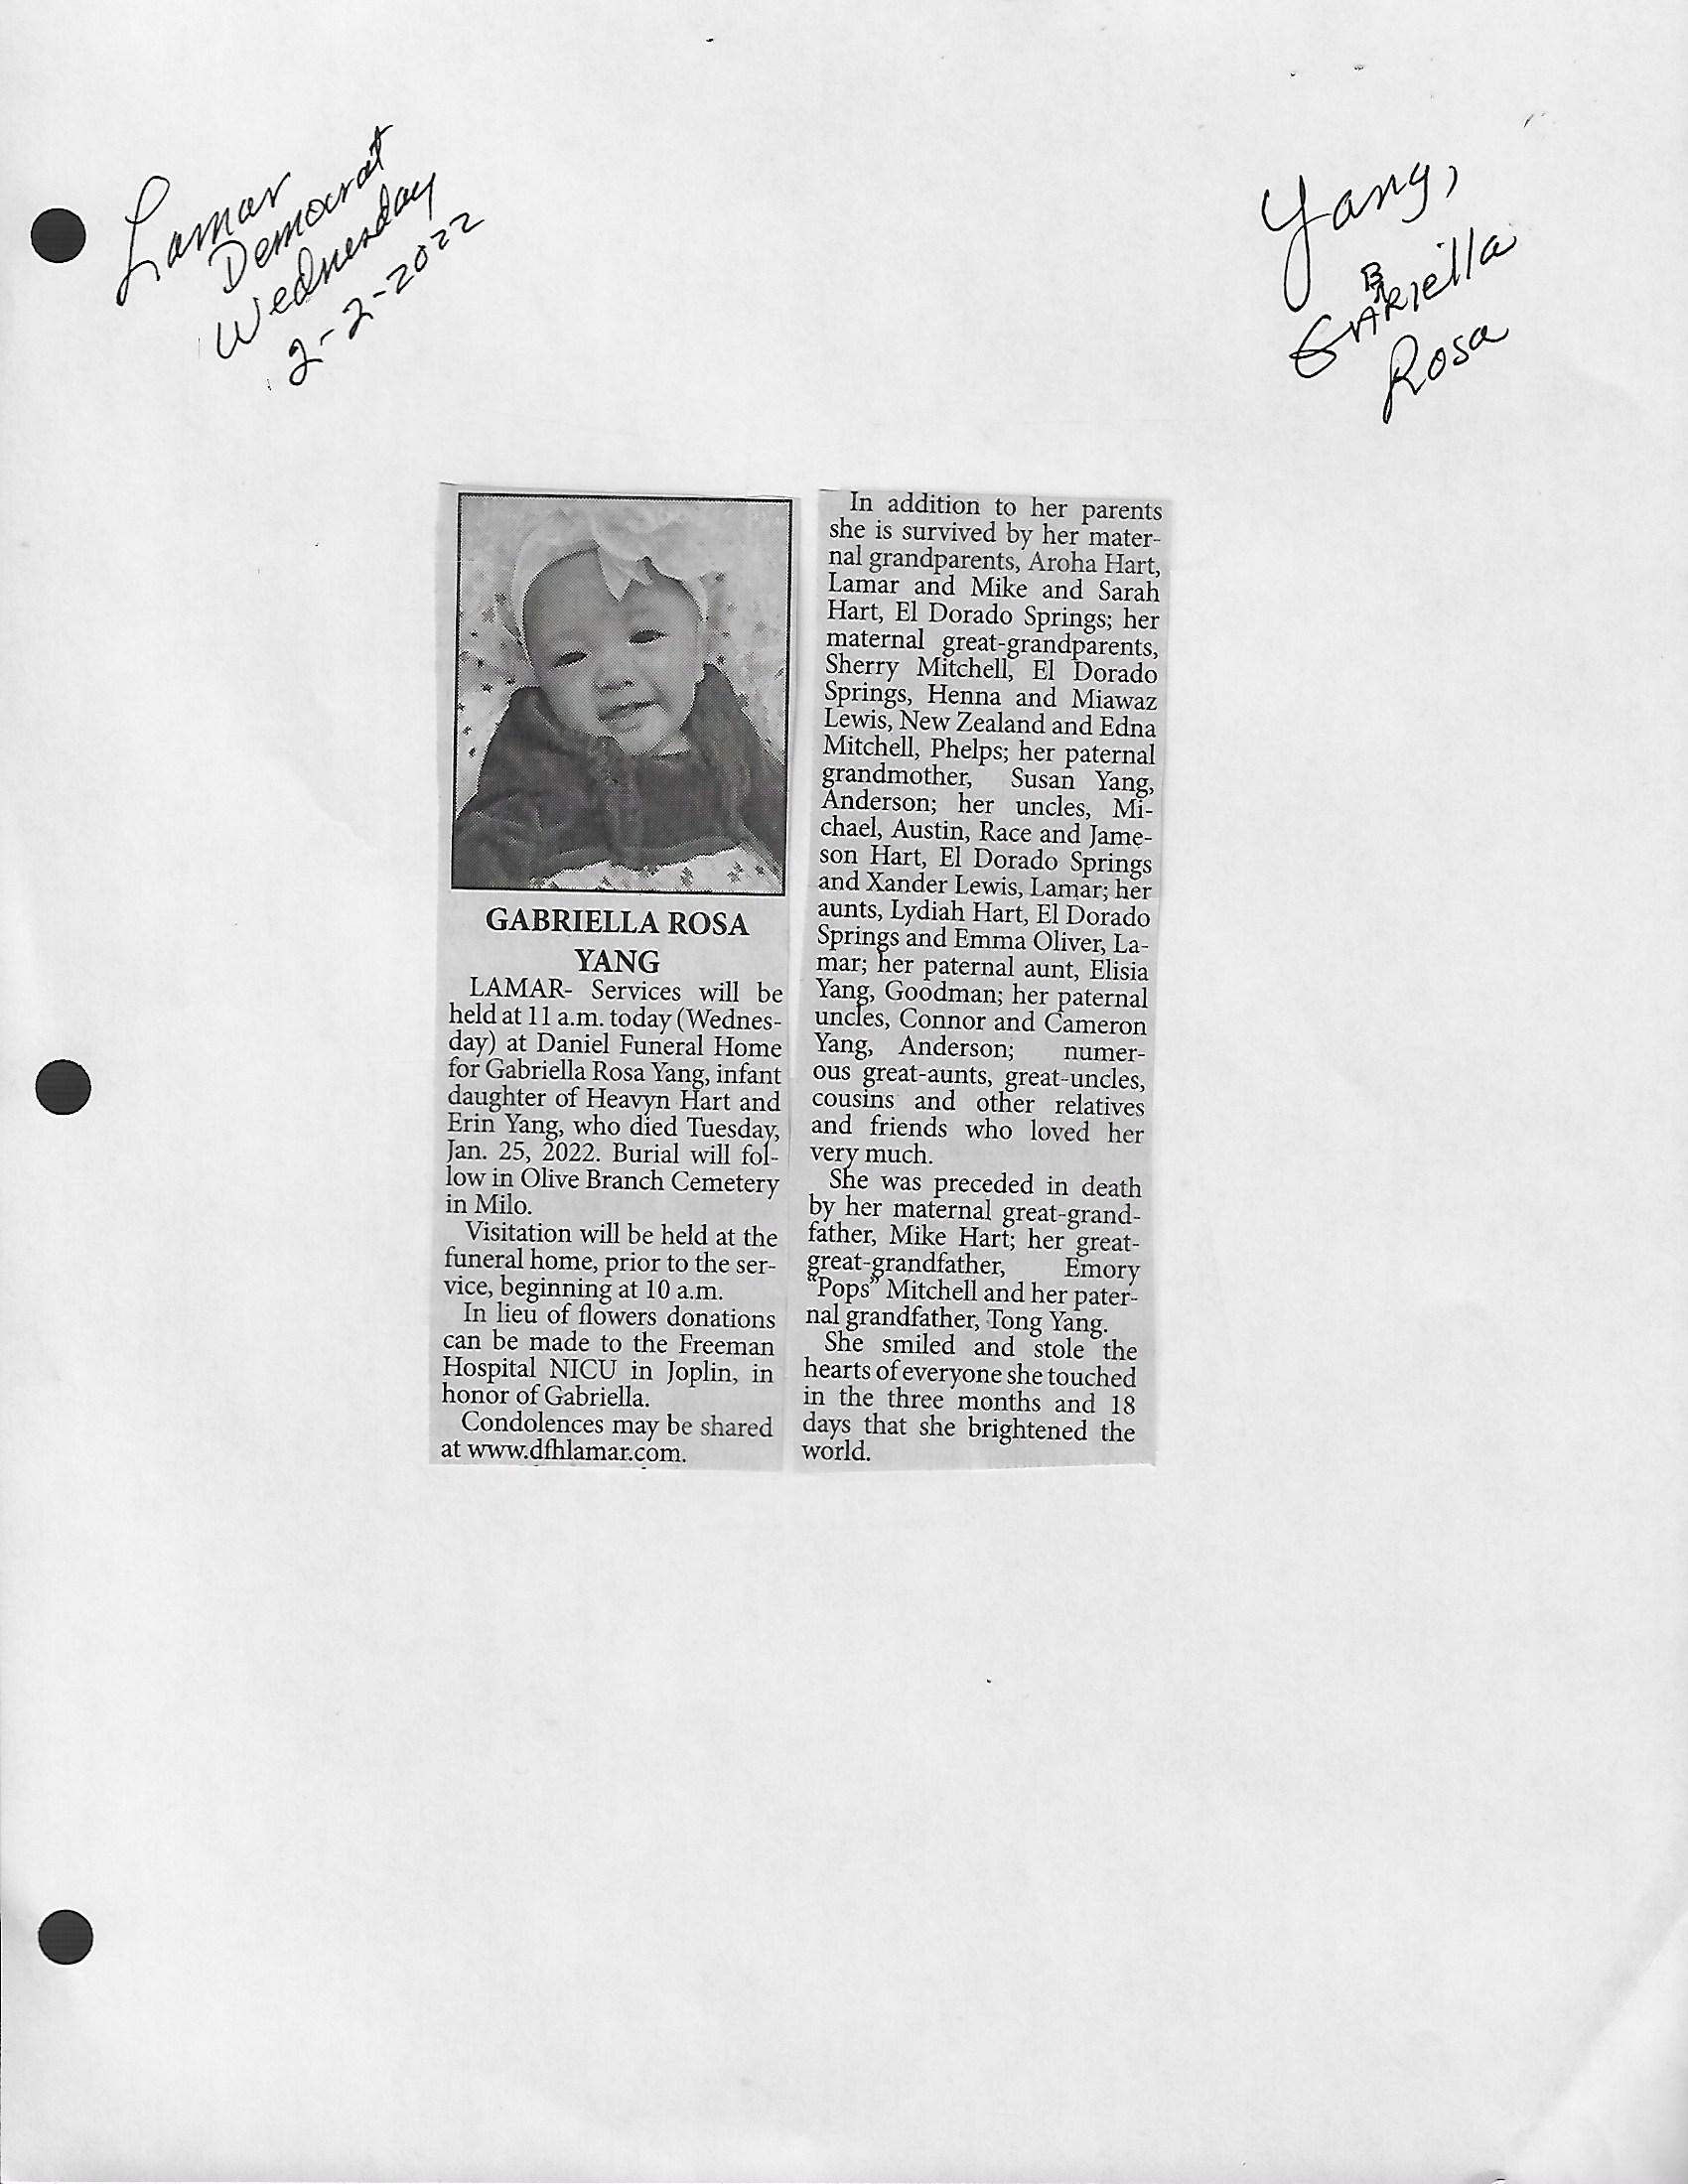 Lamar
Democrat
Wednesday
2-2-2022
Yang,
GABRiella
Rosa
GABRIELLA ROSA
YANG
LAMAR- Services will be
held at 11 a.m. today (Wednes-
day) at Daniel Funeral Home
for Gabriella Rosa Yang, infant
daughter of Heavyn Hart and
Erin Yang, who died Tuesday,
Jan. 25, 2022. Burial will fol-
low in Olive Branch Cemetery
in Milo.
Visitation will be held at the
funeral home, prior to the ser-
vice, beginning at 10 a.m.
In lieu of flowers donations
can be made to the Freeman
Hospital NICU in Joplin, in
honor of Gabriella.
Condolences may be shared
at www.dfhlamar.com.
In addition to her parents
she is survived by her mater-
nal grandparents, Aroha Hart,
Lamar and Mike and Sarah
Hart, El Dorado Springs; her
maternal great-grandparents,
Sherry Mitchell, El Dorado
Springs, Henna and Miawaz
Lewis, New Zealand and Edna
Mitchell, Phelps; her paternal
grandmother, Susan Yang,
Anderson; her uncles, Mi-
chael, Austin, Race and Jame-
son Hart, El Dorado Springs
and Xander Lewis, Lamar; her
aunts, Lydiah Hart, El Dorado
Springs and Emma Oliver, La-
mar; her paternal aunt, Elisia
Yang, Goodman; her paternal
uncles, Connor and Cameron
Yang, Anderson; numer-
ous great-aunts, great-uncles,
cousins and other relatives
and friends who loved her
very much.
She was preceded in death
by her maternal great-grand-
father, Mike Hart; her great-
great-grandfather, Emory
“Pops” Mitchell and her pater-
nal grandfather, Tong Yang.
She smiled and stole the
hearts of everyone she touched
in the three months and 18
days that she brightened the
world.